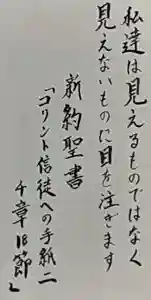 私達は見えるものではなく
見えないものに目を注ぎます
新約聖書
「コリント信徒への手紙二
4章18節」